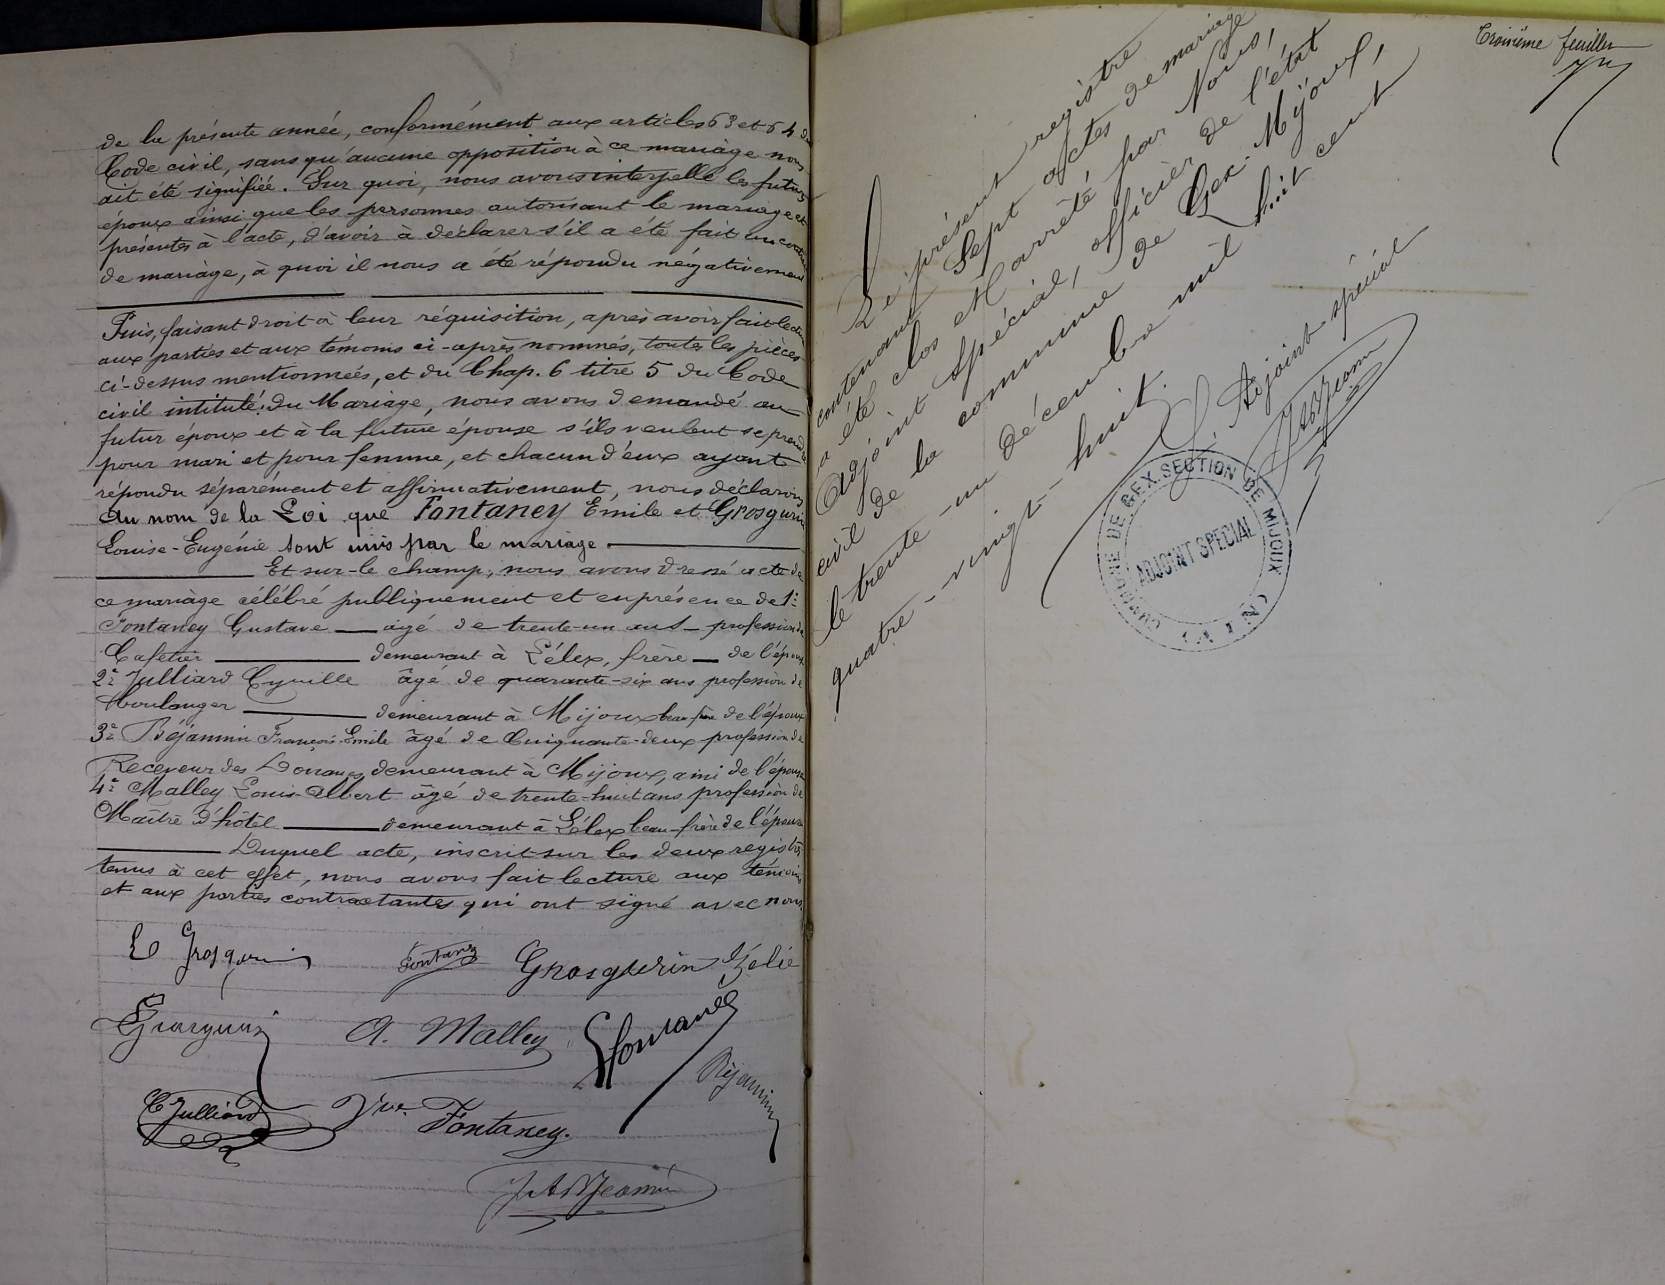 de la présente année, conformément aux articles 63 et 64 du
Code civil, sans qu'aucune opposition à ce mariage nous
ait été signifiée. Sur quoi, nous avons interpellé les futurs
époux ainsi que les personnes autorisant le mariage et
présentes à l'acte, d'avoir à déclarer s'il a été fait un
de mariage, à quoi il nous a été répondu négativement
Puis, faisant droit à leur réquisition, après avoir fait lecture
aux parties et aux témoins ci-après nommés, toutes les pièces
ci-dessus mentionnées, et du Chap. 6 titre 5 du Code
civil intitulé: Du Mariage, nous avons demandé au
futur époux et à la future épouse s'ils veulent se prendre
pour mari et pour femme, et chacun d'eux ayant
répondu séparément et affirmativement, nous déclarons
Au nom de la Loi que Fontaney Emile et Grosgurin
Louise-Eugénie sont unis par le mariage
Et sur-le champ, nous avons dressé acte de
ce mariage célébré publiquement et en présence de 1°:
Fontaney Gustave âgé de trente-un ans profession de
Cafetier demeurant à Lélex, frère de l'époux
2° Julliard Cyrille âgé de quarante-six ans profession de
Boulanger demeurant à Mijoux beau-frère de l'époux
3° Béjannin François-Emile âgé de Cinquante-deux profession de
Receveur des Douanes demeurant à Mijoux, ami de l'épouse
4° Malley Louis-Albert âgé de trente-huit ans profession de
Maître d'hôtel demeurant à Lélex beau-frère de l'épouse
Duquel acte, inscrit sur les deux registres
tenus à cet effet, nous avons fait lecture aux témoins
et aux parties contractantes qui ont signé avec nous.
Fontaney Grosgurin Zélie
A. Malley Fontaney
Béjannin
C Julliard Vve Fontaney.
Troisième feuillet
Le présent registre
contenant Sept actes de mariage
a été clos et arrêté par Nous,
Adjoint spécial, officier de l'état
civil de la commune de Gex-Mijoux,
le trente-un décembre mil huit cent
quatre-vingt-huit.
L'Adjoint spécial
COMMUNE DE GEX. SECTION DE MIJOUX
ADJOINT SPECIAL
(AIN)